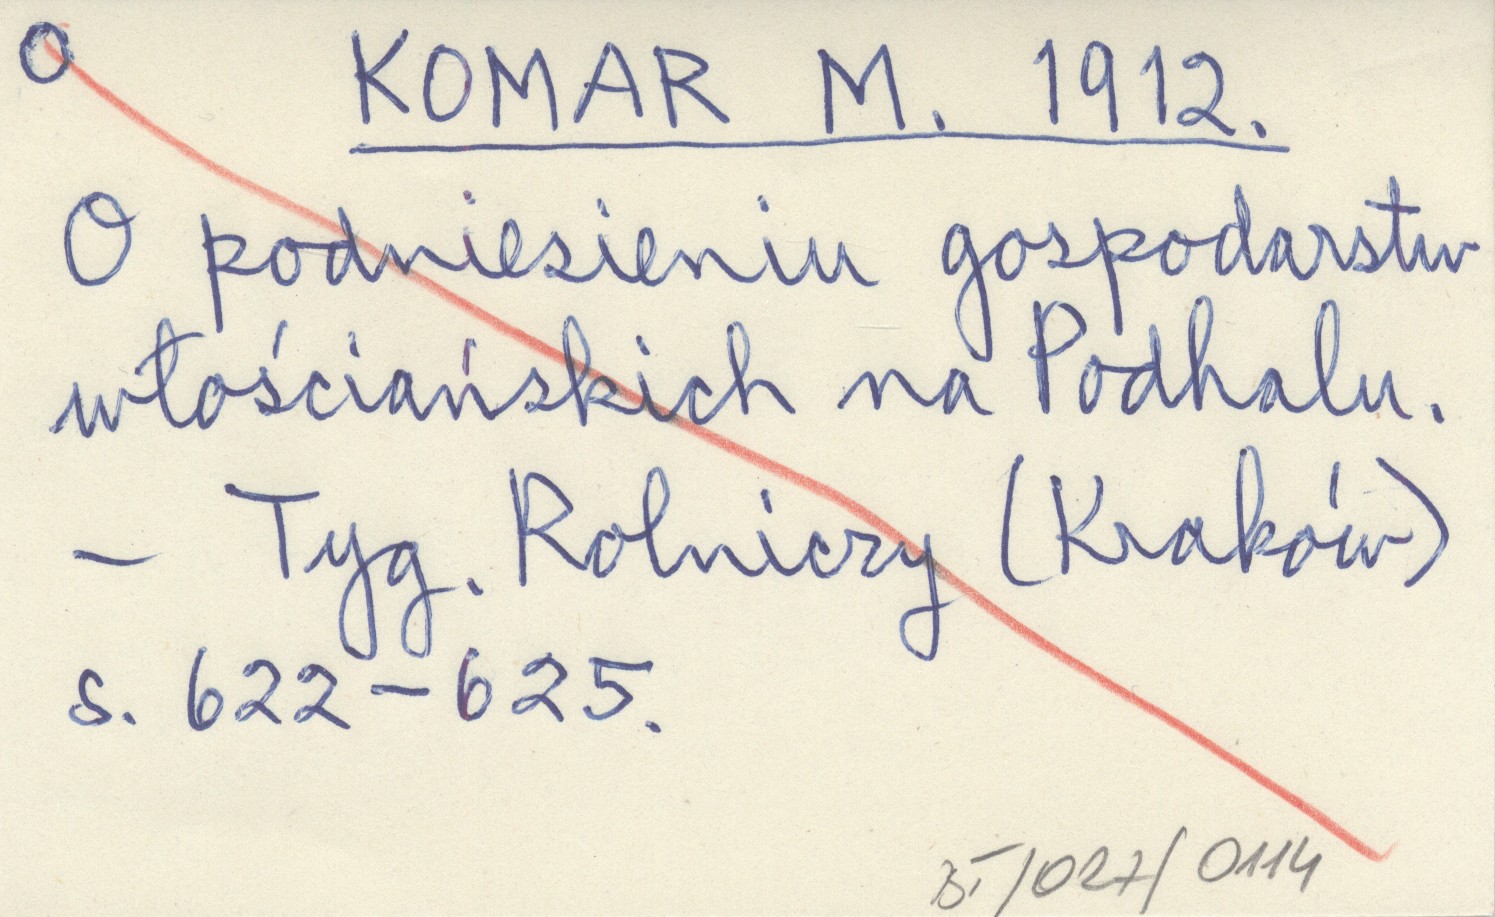 O
KOMAR M. 1912.
O podniesieniu gospodarstw
włościańskich na Podhalu.
– Tyg. Rolniczy (Kraków)
s. 622–625.
BI/027/0114